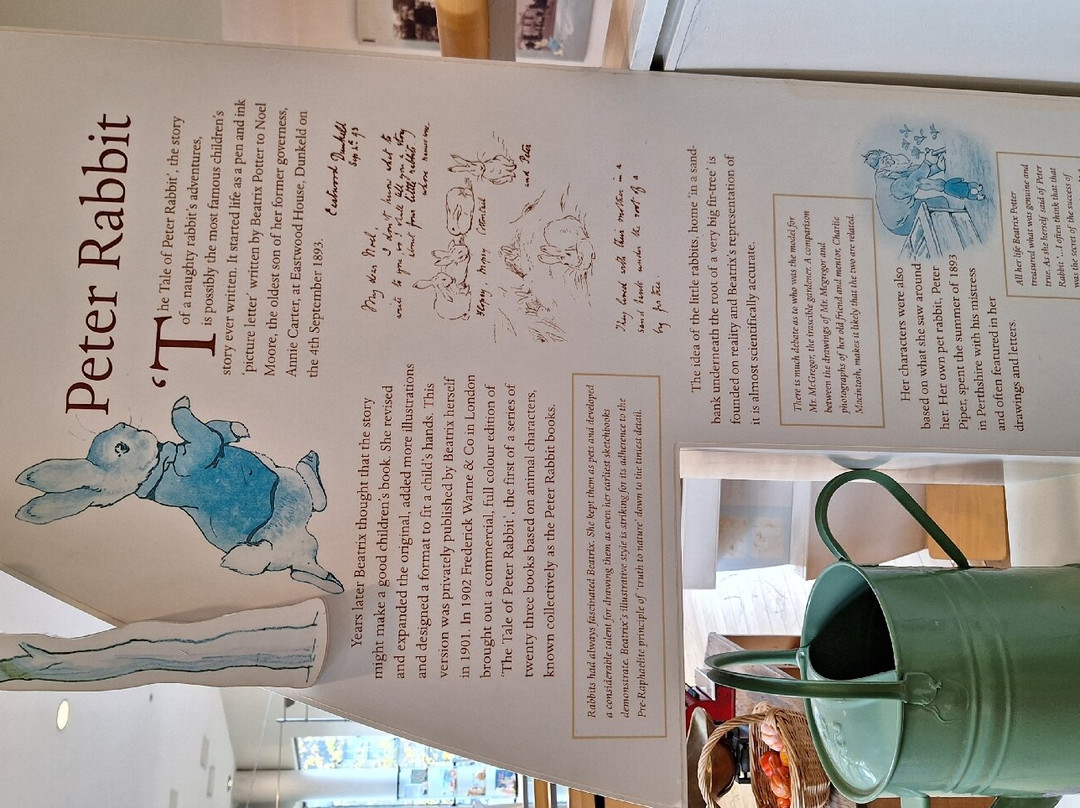 Peter Rabbit
‘The Tale of Peter Rabbit’, the story
of a naughty rabbit's adventures,
is possibly the most famous children's
story ever written. It started life as a pen and ink
‘picture letter’ written by Beatrix Potter to Noel
Moore, the oldest son of her former governess,
Annie Carter, at Eastwood House, Dunkeld on
the 4th September 1893.
Eastwood Dunkeld
Sep 4th 93
My dear Noel,
I don't know what to
write to you, so I shall tell you a story
about four little rabbits
whose names were
Flopsy, Mopsy Cottontail
and Peter
They lived with their mother in a
sand bank under the root of a
big fir tree.
Years later Beatrix thought that the story
might make a good children's book. She revised
and expanded the original, added more illustrations
and designed a format to fit a child's hands. This
version was privately published by Beatrix herself
in 1901. In 1902 Frederick Warne & Co in London
brought out a commercial, full colour edition of
‘The Tale of Peter Rabbit’, the first of a series of
twenty three books based on animal characters,
known collectively as the Peter Rabbit books.
Rabbits had always fascinated Beatrix. She kept them as pets and developed
a considerable talent for drawing them as even her earliest sketchbooks
demonstrate. Beatrix's illustrative style is striking for its adherence to the
Pre-Raphaelite principle of ‘truth to nature’ down to the tiniest detail.
The idea of the little rabbits, home ‘in a sand-
bank underneath the root of a very big fir-tree’ is
founded on reality and Beatrix's representation of
it is almost scientifically accurate.
There is much debate as to who was the model for
Mr. McGregor, the irascible gardener. A comparison
between the drawings of Mr. McGregor and
photographs of her old friend and mentor, Charlie
Macintosh, makes it likely that the two are related.
Her characters were also
based on what she saw around
her. Her own pet rabbit, Peter
Piper, spent the summer of 1893
in Perthshire with his mistress
and often featured in her
drawings and letters.
All her life Beatrix Potter
treasured what was genuine and
true. As she herself said of Peter
Rabbit ‘...I often think that that
was the secret of the success of